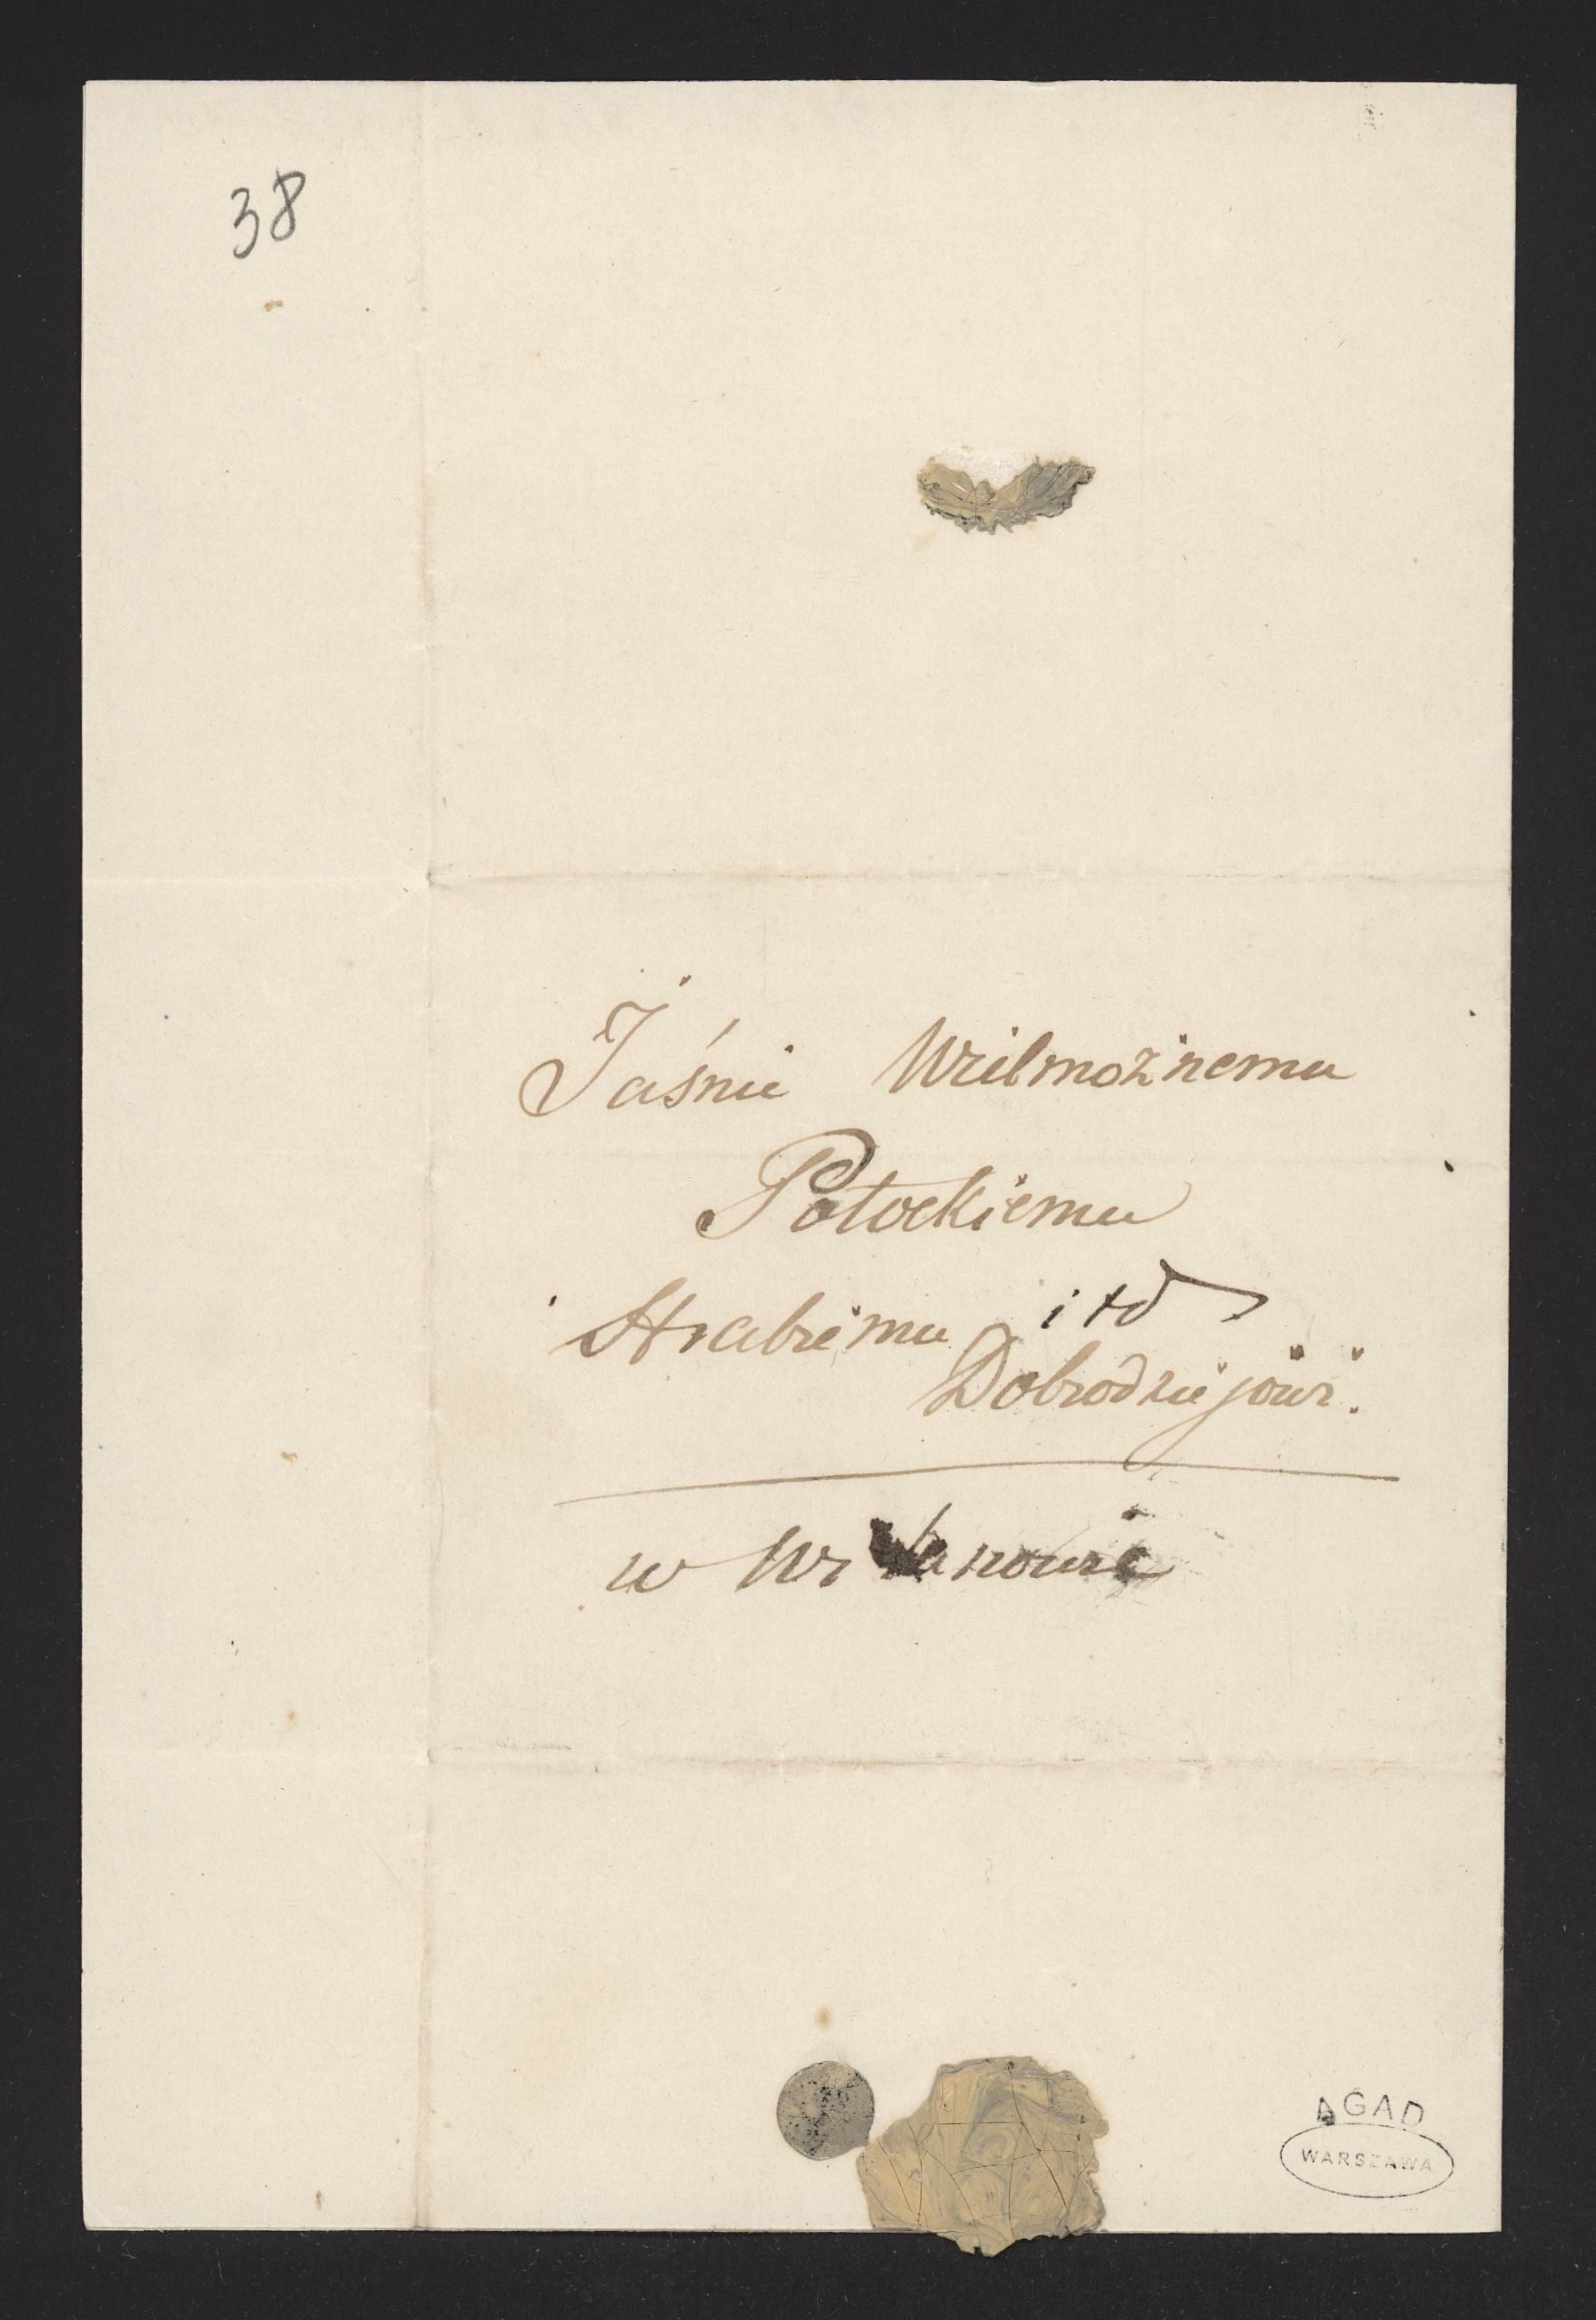 38
Jaśnie Wielmożnemu
Potockiemu
Hrabiemu itd
Dobrodziejowi.
w Wilanowie
AGAD
WARSZAWA